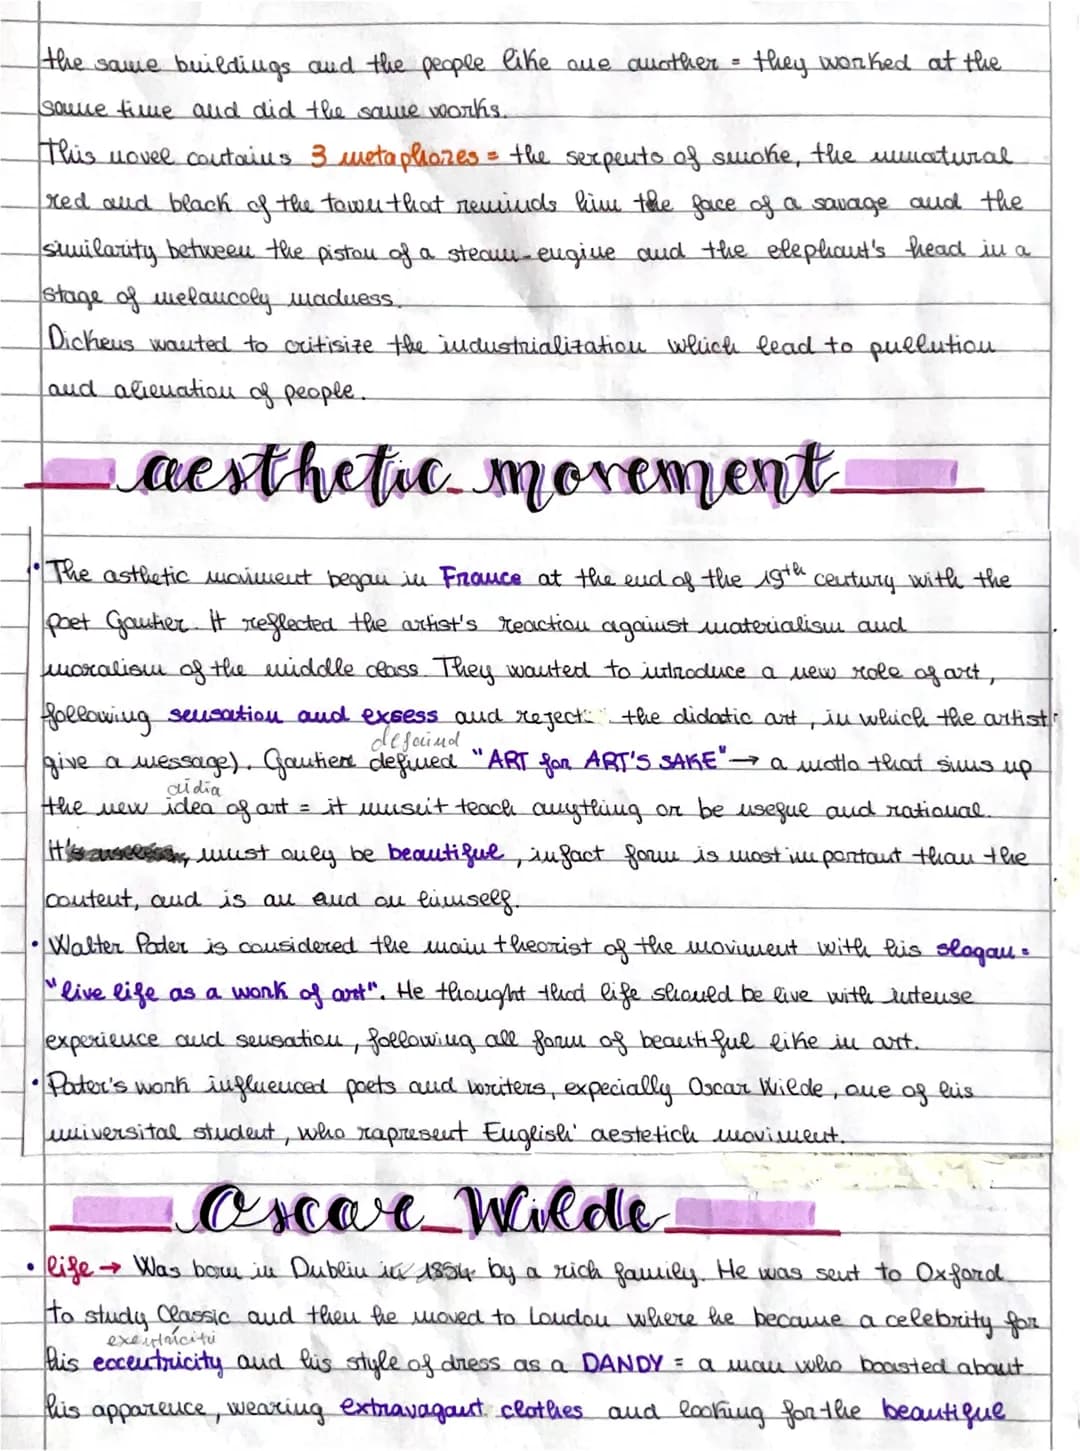 the same buildings and the people like one another = they worked at the
same time and did the same works.
This novel contains 3 metaphores = the serpents of smoke, the unnatural
red and black of the town that reminds him the face of a savage and the
similarity between the piston of a steam-engine and the elephant's head in a
stage of melancoly madness.
Dickens wanted to critisize the industrialization which lead to pullution
and alienation of people.
aesthetic movement
• The asthetic moviment began in France at the end of the 19th century with the
poet Gautier. It reflected the artist's reaction against materialism and
moralism of the middle class. They wanted to introduce a new role of art,
following sensation and exsess and reject the didatic art, in which the artist
give a message). Gautiere defined "ART for ART'S SAKE" → a motto that sums up
the new idea of art = it musn't teach anything or be useful and rational.
It's must only be beautiful, infact form is most important than the
content, and is an end on himself.
• Walter Pater is considered the main theorist of the moviment with his slogan =
"live life as a work of art". He thought that life should be live with intense
experience and sensation, following all form of beautiful like in art.
• Pater's work influenced poets and writers, expecially Oscar Wilde, one of his
universital student, who rapresent English' aestetich moviment.
Oscar Wilde
• life → Was born in Dublin in 1854 by a rich family. He was sent to Oxford
to study Classic and then he moved to London where he became a celebrity for
his eccentricity and his style of dress as a DANDY = a man who boasted about
his apparence, wearing extravagant clothes and looking for the beautiful